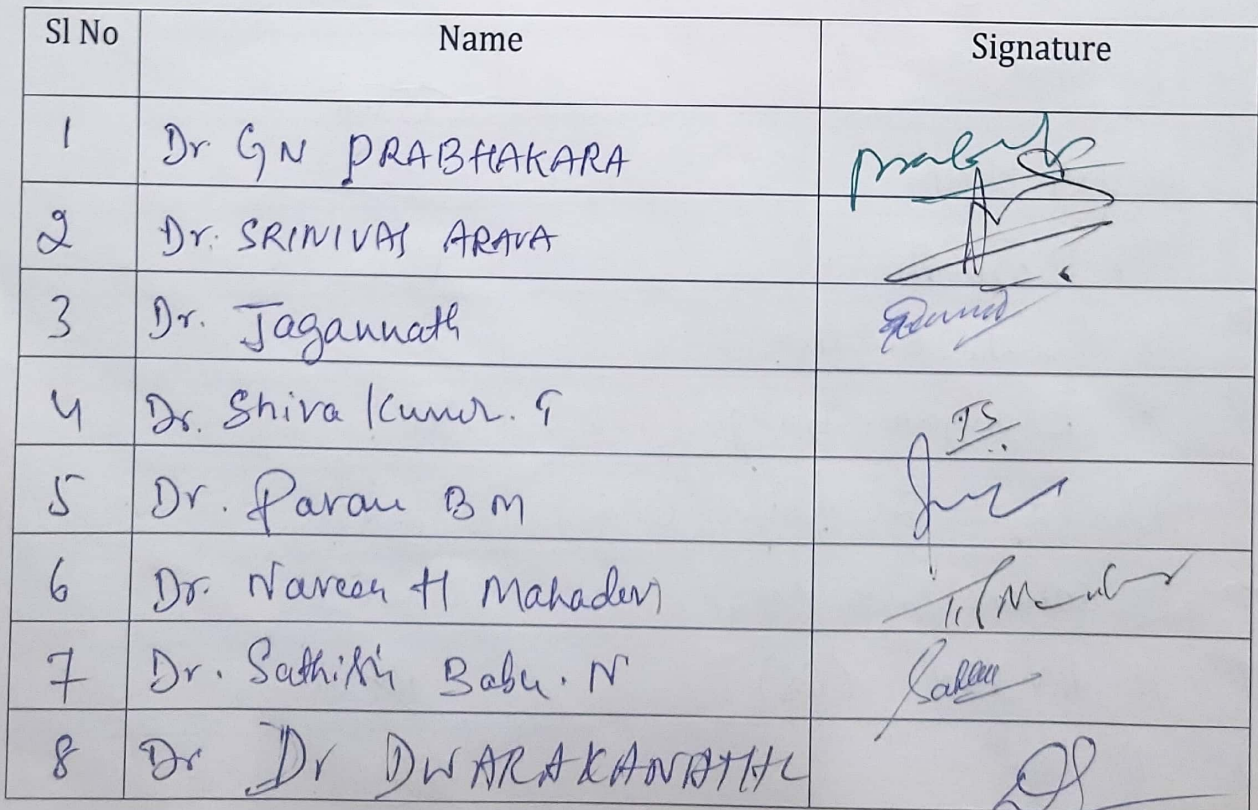 Sl No Name Signature
1 Dr. GN PRABHAKARA
2 Dr. SRINIVAS ARAVA
3 Dr. Jagannath
4 Dr. Shiva Kumar. T TS
5 Dr. Pavan BM
6 Dr. Naveen H Mahadev
7 Dr. Sathish Babu. N
8 Dr Dr DWARAKANATH